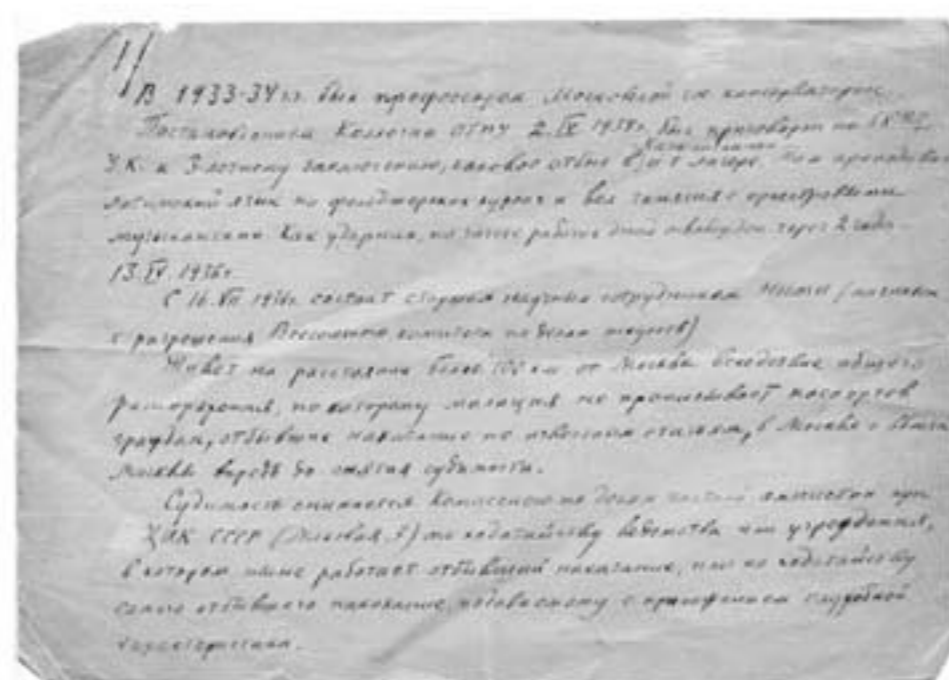 1/
В 1933-34 гг. был профессором Московской гос. консерватории.
Постановлением Коллегии ОГПУ 2.IX 1934 г. был приговорен по
У.К. к 3-летнему заключению, каковое отбыл в лагере. Там преподавал
латинский язык на фельдшерских курсах и вел занятия с
музыкантами. Как ударник, по зачете рабочих дней освобожден через 2 года
13.IV.1936 г.
С 16.VII 1936 г. состоит старшим научным сотрудником
с разрешения Всесоюзного комитета по делам искусств)
Живет на расстоянии более 100 км. от Москвы вследствие общего
распоряжения, по которому милиция не прописывает паспортов
граждан, отбывших наказание по известным статьям, в Москве и близ
Москвы впредь до снятия судимости.
Судимость снимается Комиссией по делам частной амнистии при
ЦИК СССР по ходатайству ведомства или учреждения,
в котором ныне работает отбывший наказание, или по ходатайству
самого отбывшего наказание, подаваемому с приложением служебной
характеристики.